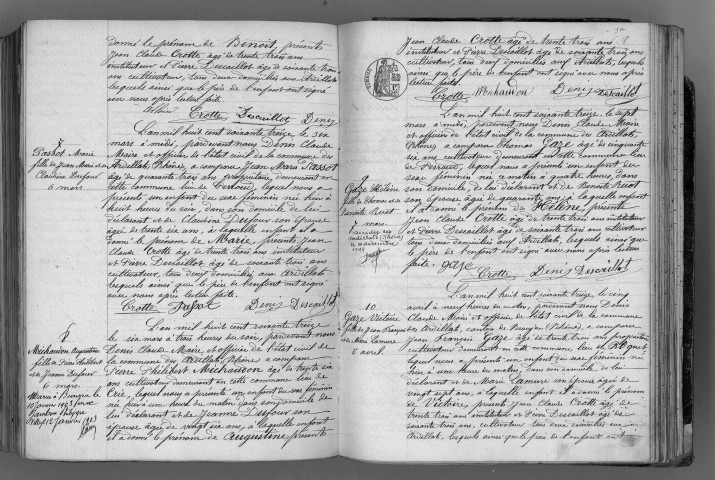 donné le prénom de Benoit, présents
Jean Claude Crotte âgé de trente trois ans
instituteur et Pierre Descaillot âgé de soixante trois
ans cultivateur, tous deux domiciliés aux Ardillats
lesquels ainsi que le père de l'enfant ont signé
avec nous après lecture faite.
Crotte Descaillot Denis
7
Passot Marie
fille de Jean Marie et de
Claudine Dufour
6 mars
L'an mil huit cent soixante treize le six
mars à midi, pardevant nous Denis Claude
Maire et officier de l'état civil de la commune des
Ardillats, Rhône, a comparu Jean Marie Passot
âgé de quarante trois ans, propriétaire demeurant en
cette commune lieu de, lequel nous a
présenté un enfant du sexe féminin née hier à
huit heures du soir, dans son domicile de lui
déclarant et de Claudine Dufour son épouse
âgée de trente six ans, à laquelle enfant il a
donné le prénom de Marie, présents Jean
Claude Crotte âgé de trente trois ans instituteur
et Pierre Descaillot âgé de soixante trois ans
cultivateur, tous deux domiciliés aux Ardillats,
lesquels ainsi que le père de l'enfant ont signé
avec nous après lecture faite.
Crotte Denis Descaillot
8
Michaudon Augustine
fille de Pierre Philibert
et de Jeanne Dufour
6 mars
L'an mil huit cent soixante treize
le six mars à trois heures du soir, pardevant nous
Denis Claude Maire et officier de l'état civil de
la commune des Ardillats, Rhône, a comparu
Pierre Philibert Michaudon âgé de trente six
ans cultivateur demeurant en cette commune lieu de
, lequel nous a présenté un enfant du sexe féminin
née heure du matin dans son domicile de
lui déclarant et de Jeanne Dufour son
épouse âgée de vingt six ans, à laquelle enfant
il a donné le prénom de Augustine présents
Jean Claude Crotte âgé de trente trois ans
instituteur et Pierre Descaillot âgé de soixante trois ans
cultivateur, tous deux domiciliés aux Ardillats, lesquels
ainsi que le père de l'enfant ont signé avec nous après
lecture faite.
Crotte Michaudon Denis Descaillot
9
Gaze Hélène
fille de Thomas et de
Benoite Ruet
7 mars
L'an mil huit cent soixante treize, le sept
mars à midi, pardevant nous Denis Claude Maire
et officier de l'état civil de la commune des Ardillats,
Rhône, a comparu Thomas Gaze âgé de cinquante
six ans cultivateur demeurant en cette commune lieu
de, lequel nous a présenté un enfant du
sexe féminin née ce matin à quatre heures, dans
son domicile de lui déclarant et de Benoite Ruet
son épouse âgée de quarante ans, à laquelle enfant
il a donné le prénom de Hélène, présents
Jean Claude Crotte âgé de trente trois ans instituteur
et Pierre Descaillot âgé de soixante trois ans cultivateur
tous deux domiciliés aux Ardillats, lesquels ainsi que
le père de l'enfant ont signé avec nous après lecture
faite. Gaze
Crotte Denis Descaillot
10
Gaze Victoire
fille de Jean François
et de Marie Lamure
5 avril.
L'an mil huit cent soixante treize, le cinq
avril à neuf heures du matin, pardevant nous Denis
Claude Maire et officier de l'état civil de la commune
des Ardillats, canton de Beaujeu (Rhône) a comparu
Jean François Gaze âgé de trente ans propriétaire
cultivateur demeurant en cette commune
lequel nous a présenté un enfant du sexe féminin née
hier à une heure du matin, dans son domicile, de lui
déclarant et de Marie Lamure son épouse âgée de
vingt sept ans, à laquelle enfant il a donné le prénom
de Victoire, présents Jean Claude Crotte âgé de
trente trois ans instituteur et Pierre Descaillot âgé de
soixante trois ans, cultivateur tous deux domiciliés aux
Ardillats, lesquels ainsi que le père de l'enfant ont